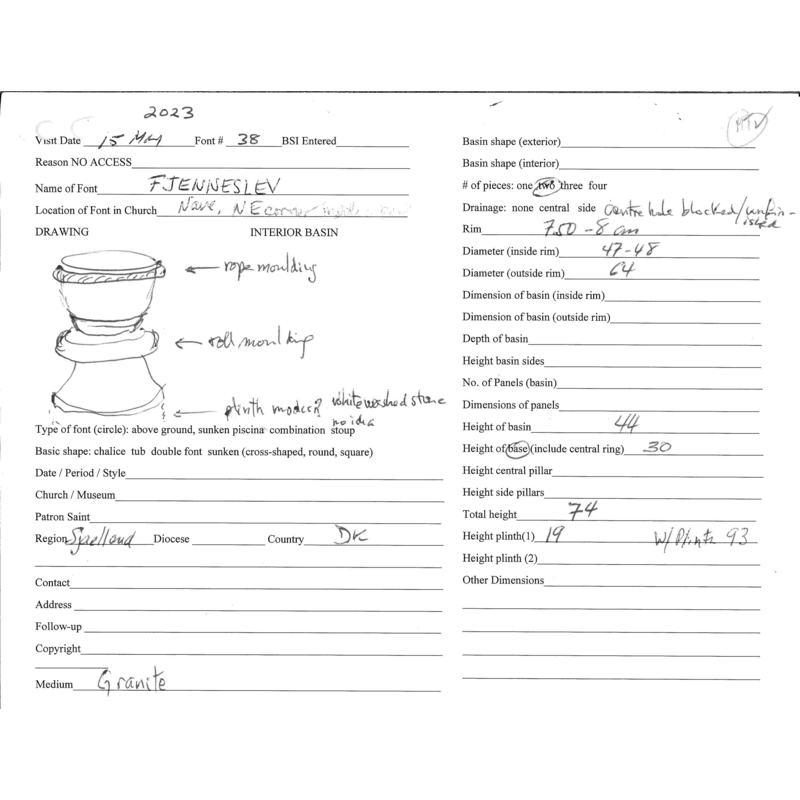 2023
Visit Date 15 MAY Font # 38 BSI Entered
Reason NO ACCESS
Name of Font FJENNESLEV
Location of Font in Church Nave, NE corner
DRAWING INTERIOR BASIN
rope moulding
roll moulding
plinth modern? whitewashed stone
no idea
Type of font (circle): above ground, sunken piscina combination stoup
Basic shape: chalice tub double font sunken (cross-shaped, round, square)
Date / Period / Style
Church / Museum
Patron Saint
Region Sjaelland Diocese Country DK
Contact
Address
Follow-up
Copyright
Medium Granite
Basin shape (exterior)
Basin shape (interior)
# of pieces: one two three four
Drainage: none central side Centre hole blocked/unfin-
ished
Rim 7.50 - 8 cm
Diameter (inside rim) 47-48
Diameter (outside rim) 64
Dimension of basin (inside rim)
Dimension of basin (outside rim)
Depth of basin
Height basin sides
No. of Panels (basin)
Dimensions of panels
Height of basin 44
Height of base (include central ring) 30
Height central pillar
Height side pillars
Total height 74
Height plinth(1) 19 W/ Plinth 93
Height plinth (2)
Other Dimensions